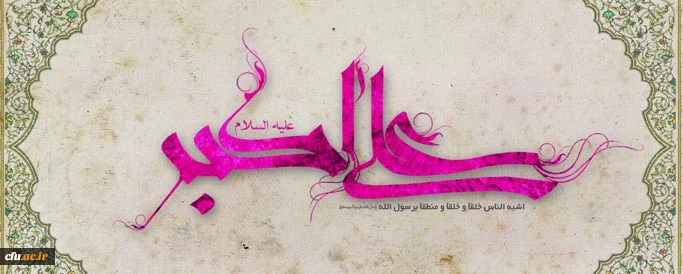 علی الاکبر
علیه السلام
اشبه الناس خلقاً و خلقاً و منطقاً برسول الله
cfu.ac.ir